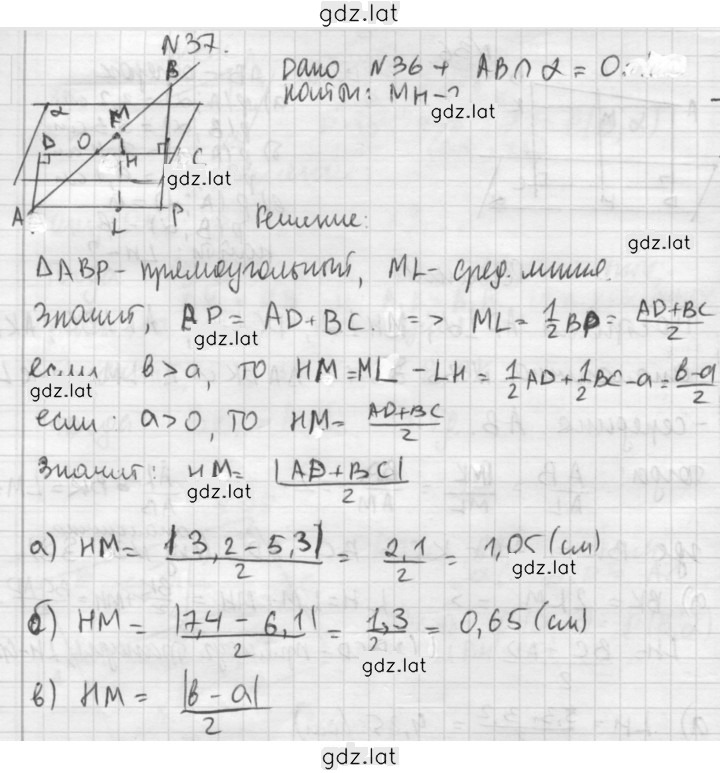 gdz.lat
N37.
Дано N36 + AB∩α = O
Найти: MH-?
gdz.lat
B
α
M
D O H C
gdz.lat
A L P
Решение:
gdz.lat
ΔABP - прямоугольный, ML - сред. линия.
Значит, AP = AD + BC. => ML = 1/2 BP = (AD+BC)/2
gdz.lat
если b > a, то HM = ML - LH = 1/2 AD + 1/2 BC - a = (b-a)/2
gdz.lat
если a > 0, то HM = (AD+BC)/2
Значит: HM = |AD+BC|/2
gdz.lat
а) HM = |3,2 - 5,3|/2 = 2,1/2 = 1,05 (см)
gdz.lat
б) HM = |7,4 - 6,1|/2 = 1,3/2 = 0,65 (см)
gdz.lat
в) HM = |b - a|/2
gdz.lat